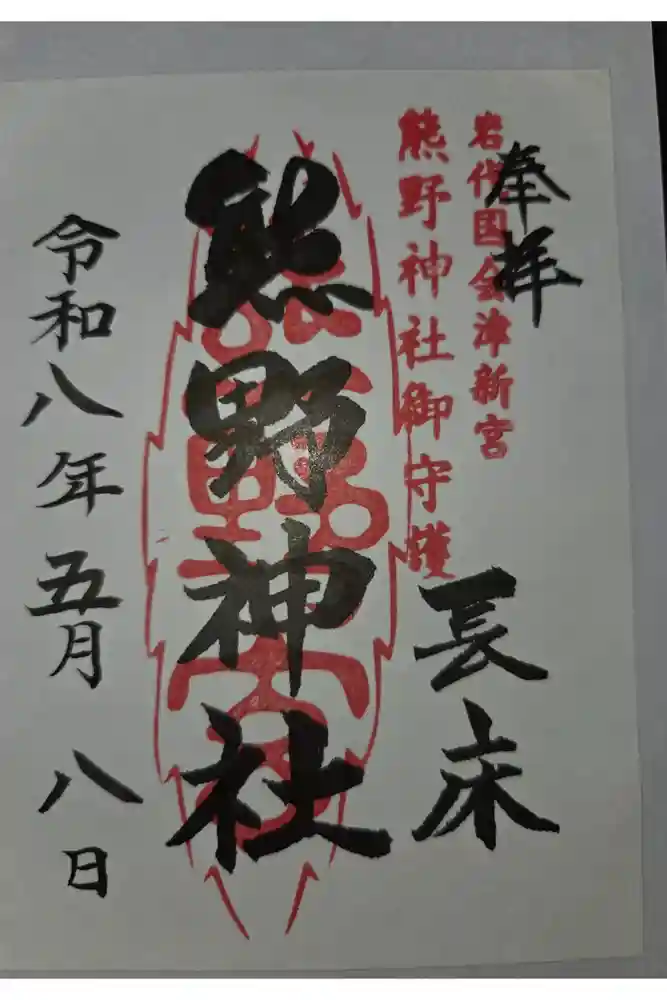 奉拝
岩代国会津新宮
熊野神社御守護
長床
熊野神社
令和八年五月八日